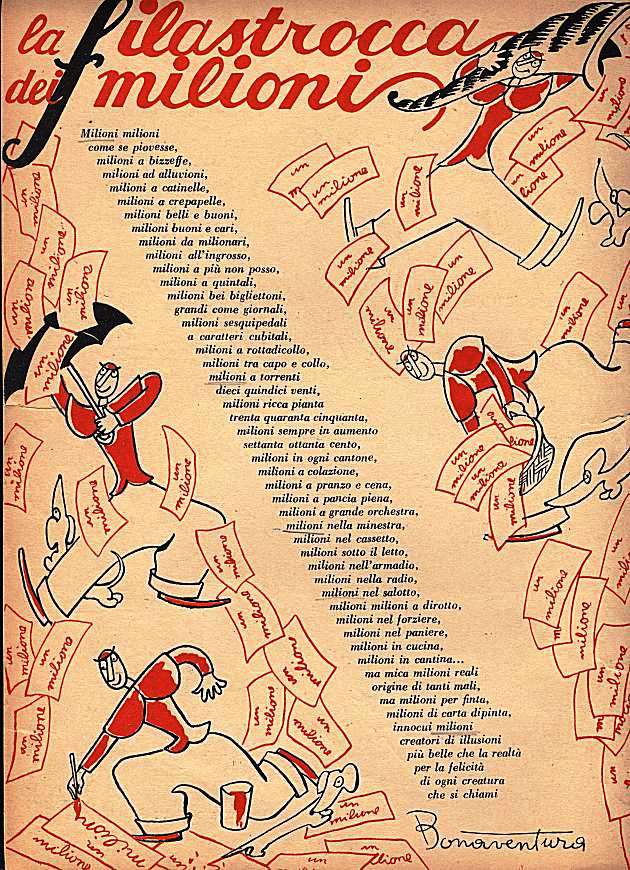 la filastrocca
dei milioni
Milioni milioni
come se piovesse,
milioni a bizzeffe,
milioni ad alluvioni,
milioni a catinelle,
milioni a crepapelle,
milioni belli e buoni,
milioni buoni e cari,
milioni da milionari,
milioni all'ingrosso,
milioni a più non posso,
milioni a quintali,
milioni bei bigliettoni,
grandi come giornali,
milioni sesquipedali
a caratteri cubitali,
milioni a rottadicollo,
milioni tra capo e collo,
milioni a torrenti
dieci quindici venti,
milioni ricca pianta
trenta quaranta cinquanta,
milioni sempre in aumento
settanta ottanta cento,
milioni in ogni cantone,
milioni a colazione,
milioni a pranzo e cena,
milioni a pancia piena,
milioni a grande orchestra,
milioni nella minestra,
milioni nel cassetto,
milioni sotto il letto,
milioni nell'armadio,
milioni nella radio,
milioni nel salotto,
milioni milioni a dirotto,
milioni nel forziere,
milioni nel paniere,
milioni in cucina,
milioni in cantina...
ma mica milioni reali
origine di tanti mali,
ma milioni per finta,
milioni di carta dipinta,
innocui milioni
creatori di illusioni
più belle che la realtà
per la felicità
di ogni creatura
che si chiami
Bonaventura
un
milione
un
milione
un
milione
un
milione
un
milione
un
milione
un
milione
un
milione
un
milione
un
milione
un
milione
un
milione